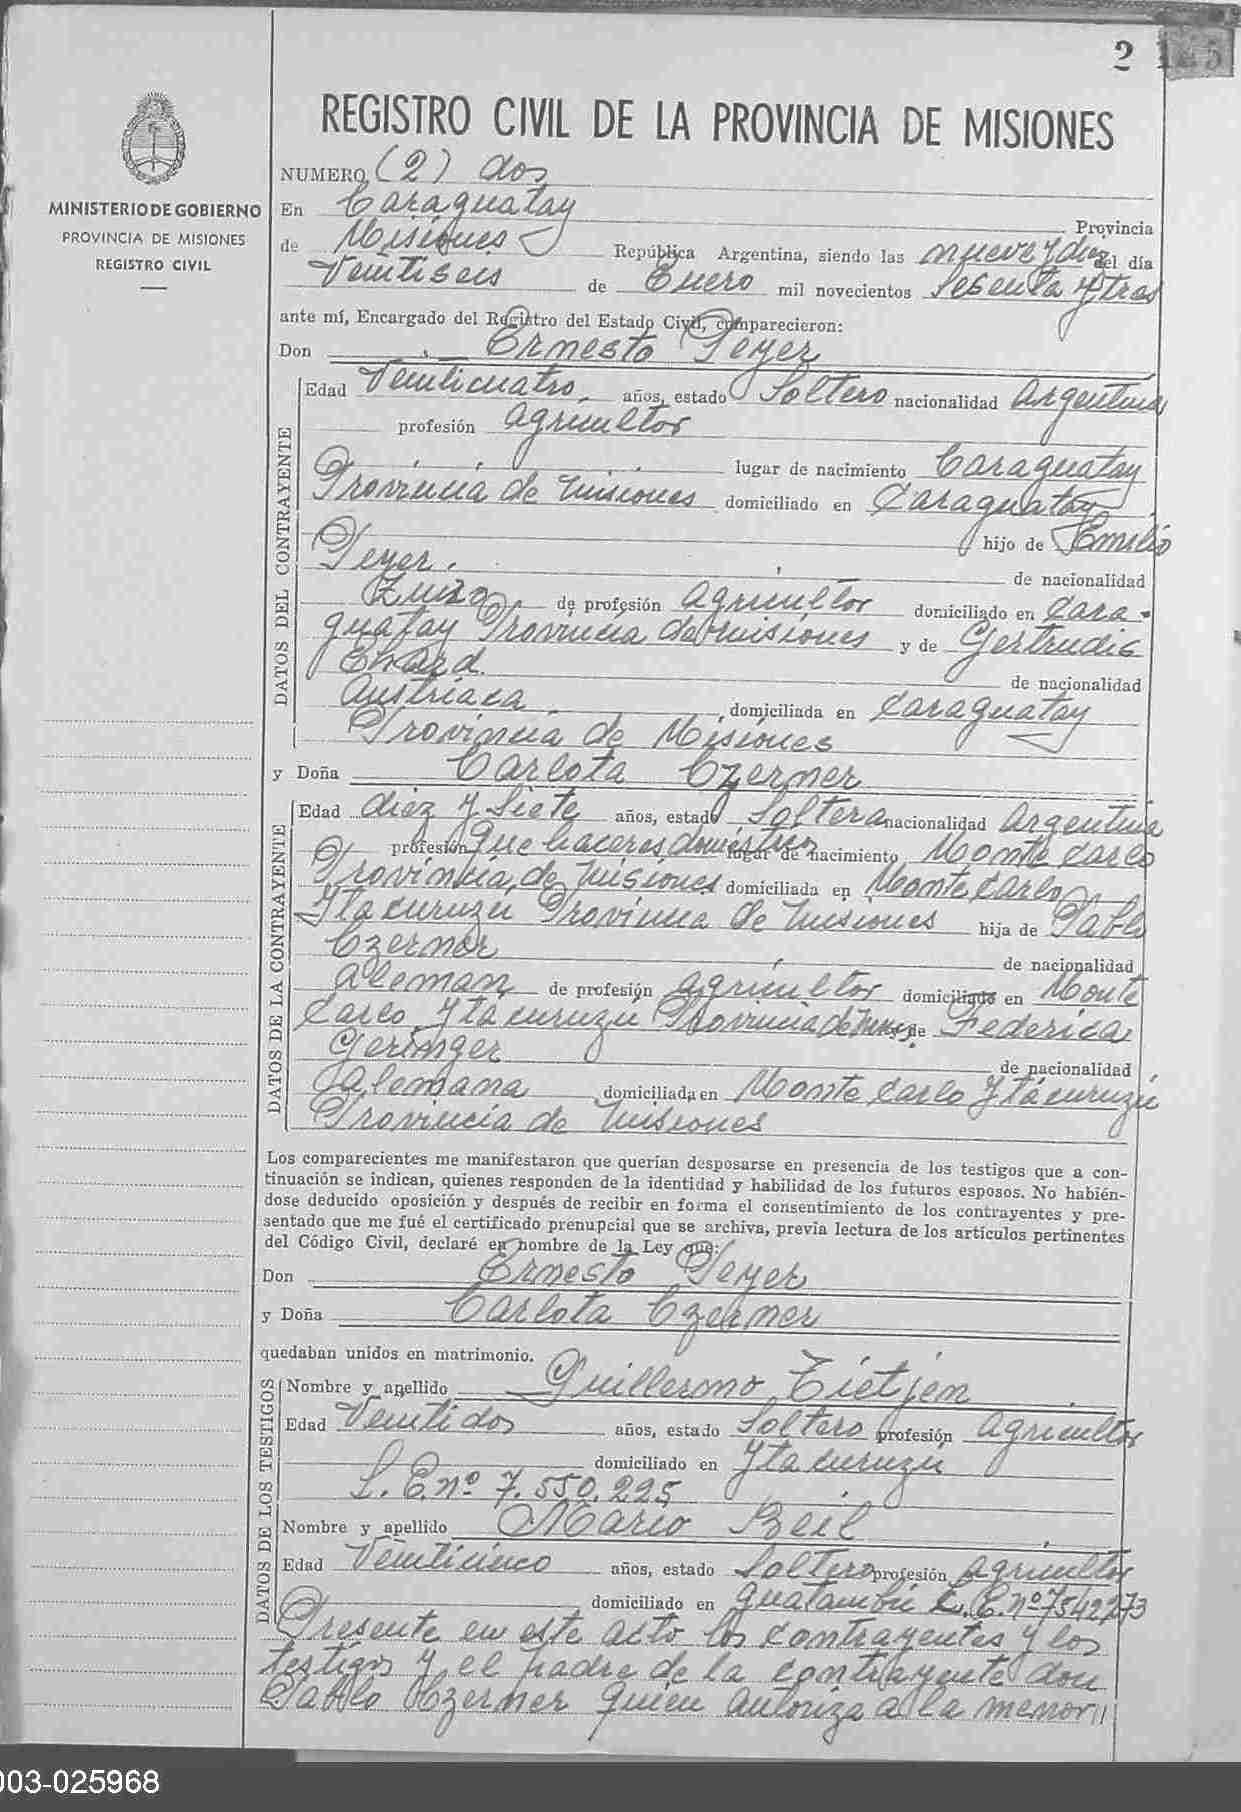 2 145
REGISTRO CIVIL DE LA PROVINCIA DE MISIONES
MINISTERIO DE GOBIERNO
PROVINCIA DE MISIONES
REGISTRO CIVIL
NUMERO (2) dos
En Caraguatay Provincia
de Misiones República Argentina, siendo las nueve y diez del día
Veintiseis de Enero mil novecientos sesenta y tres
ante mí, Encargado del Registro del Estado Civil, comparecieron:
Don Ernesto Peyer
DATOS DEL CONTRAYENTE
Edad Veinticuatro años, estado Soltero nacionalidad Argentina
profesión agricultor
lugar de nacimiento Caraguatay
Provincia de Misiones domiciliado en Caraguatay
hijo de Emilio
Peyer de nacionalidad
Zuizo de profesión agricultor domiciliado en Cara-
guatay Provincia de Misiones y de Gertrudis
de nacionalidad
Austriaca, domiciliada en Caraguatay
Provincia de Misiones
y Doña Carlota Czerner
DATOS DE LA CONTRAYENTE
Edad diez y siete años, estado Soltera nacionalidad Argentina
profesión que haceres domésticos lugar de nacimiento Monte Carlo
Provincia de Misiones domiciliada en Monte Carlo
Ytacuruzu Provincia de Misiones hija de Pablo
Czerner de nacionalidad
Aleman de profesión agricultor domiciliado en Monte
Carlo Ytacuruzú Provincia de Mnes y de Federica
Geringer de nacionalidad
alemana domiciliada en Monte Carlo Ytacuruzú
Provincia de Misiones
Los comparecientes me manifestaron que querían desposarse en presencia de los testigos que a con-
tinuación se indican, quienes responden de la identidad y habilidad de los futuros esposos. No habién-
dose deducido oposición y después de recibir en forma el consentimiento de los contrayentes y pre-
sentado que me fué el certificado prenupcial que se archiva, previa lectura de los artículos pertinentes
del Código Civil, declaré en nombre de la Ley que:
Don Ernesto Peyer
y Doña Carlota Czerner
quedaban unidos en matrimonio.
DATOS DE LOS TESTIGOS
Nombre y apellido Guillermo Tietjen
Edad Veintidos años, estado Soltero profesión agricultor
domiciliado en Ytacuruzú
L. E. nº 7.550.225
Nombre y apellido Mario Beil
Edad Veinticinco años, estado Soltero profesión agricultor
domiciliado en Guatambú L. E. nº 7542273
Presente en este acto los contrayentes y los
testigos y el padre de la contrayente don
Pablo Czerner quien autoriza a la menor //
003-025968